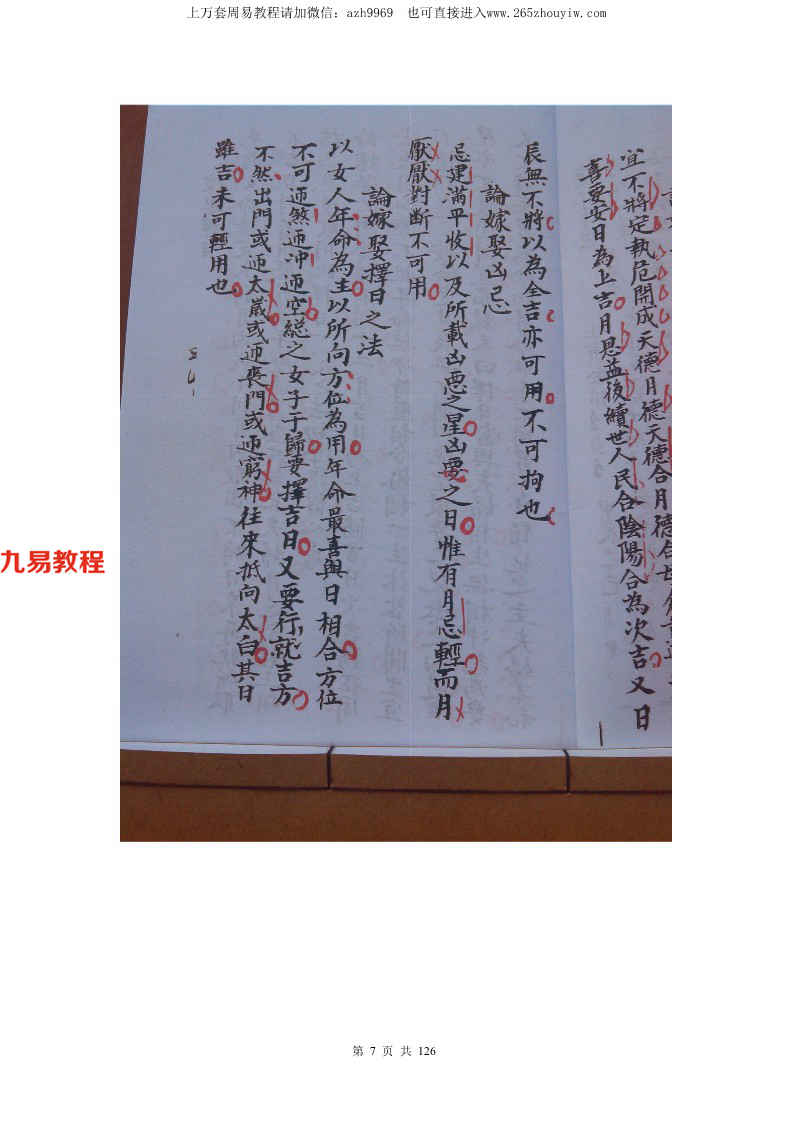 上万套周易教程请加微信：azh9969 也可直接进入www.265zhouyiw.com
宜不將定執危開成天德月德天德合月德合
喜要安日為上吉月恩益後續世人民合陰陽合為次吉又日
辰無不將以為全吉亦可用不可拘也
論嫁娶凶忌
忌建滿平收以及所載凶惡之星凶要之日惟有月忌輕而月
厭厭對斷不可用
論嫁娶擇日之法
以女人年命為主以所向方位為用年命最喜與日相合方位
不可逥煞逥冲逥空総之女子于歸要擇吉日又要行就吉方
不然出門或逥太歲或逥喪門或逥窮神往來抵向太白其日
雖吉未可輕用也
九易教程
第 7 页 共 126